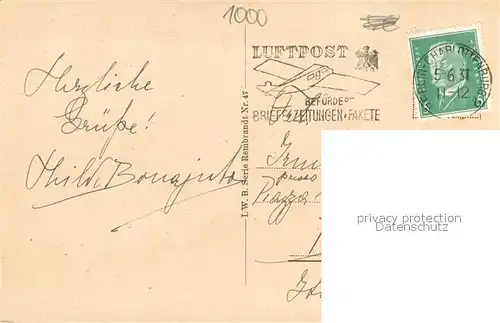 1000
Herzliche
Grüße!
Bonajuto
I. W. B. Serie Rembrandt Nr. 47
LUFTPOST
BEFÖRDERT
BRIEFE·ZEITUNGEN·PAKETE
BERLIN-CHARLOTTENBURG
5.6.31
11-12
Piazza
privacy protection
Datenschutz